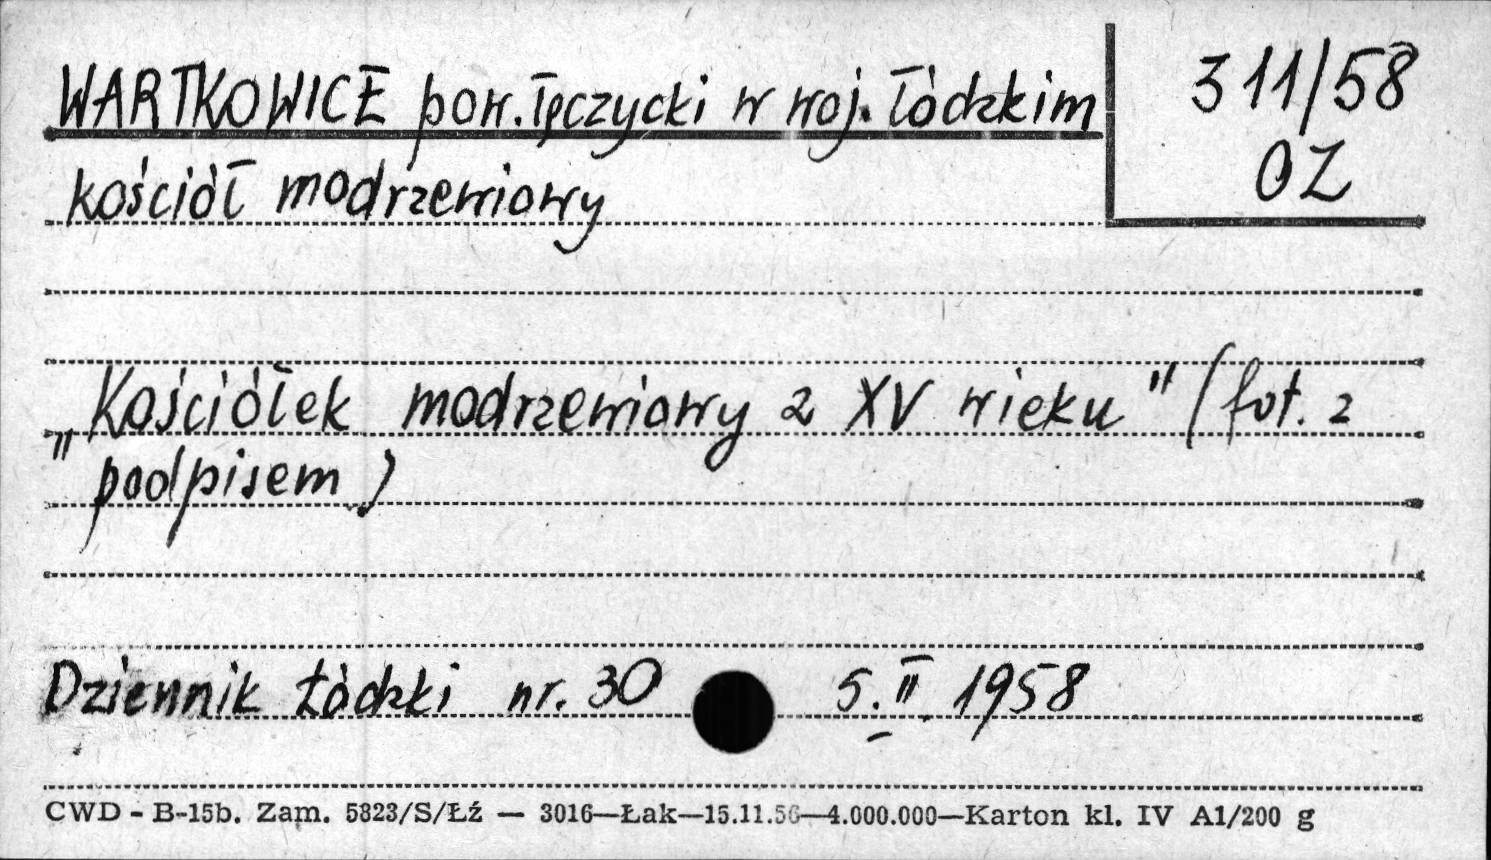 WARTKOWICE pow. łęczycki w woj. łódzkim
311/58
OZ
kościół modrzewiowy
„Kościółek modrzewiowy z XV wieku" (fot. z
podpisem)
Dziennik Łódzki nr. 30 5.II.1958
CWD - B-15b. Zam. 5323/S/Łź — 3016—Łak—15.11.56—4.000.000—Karton kl. IV A1/200 g